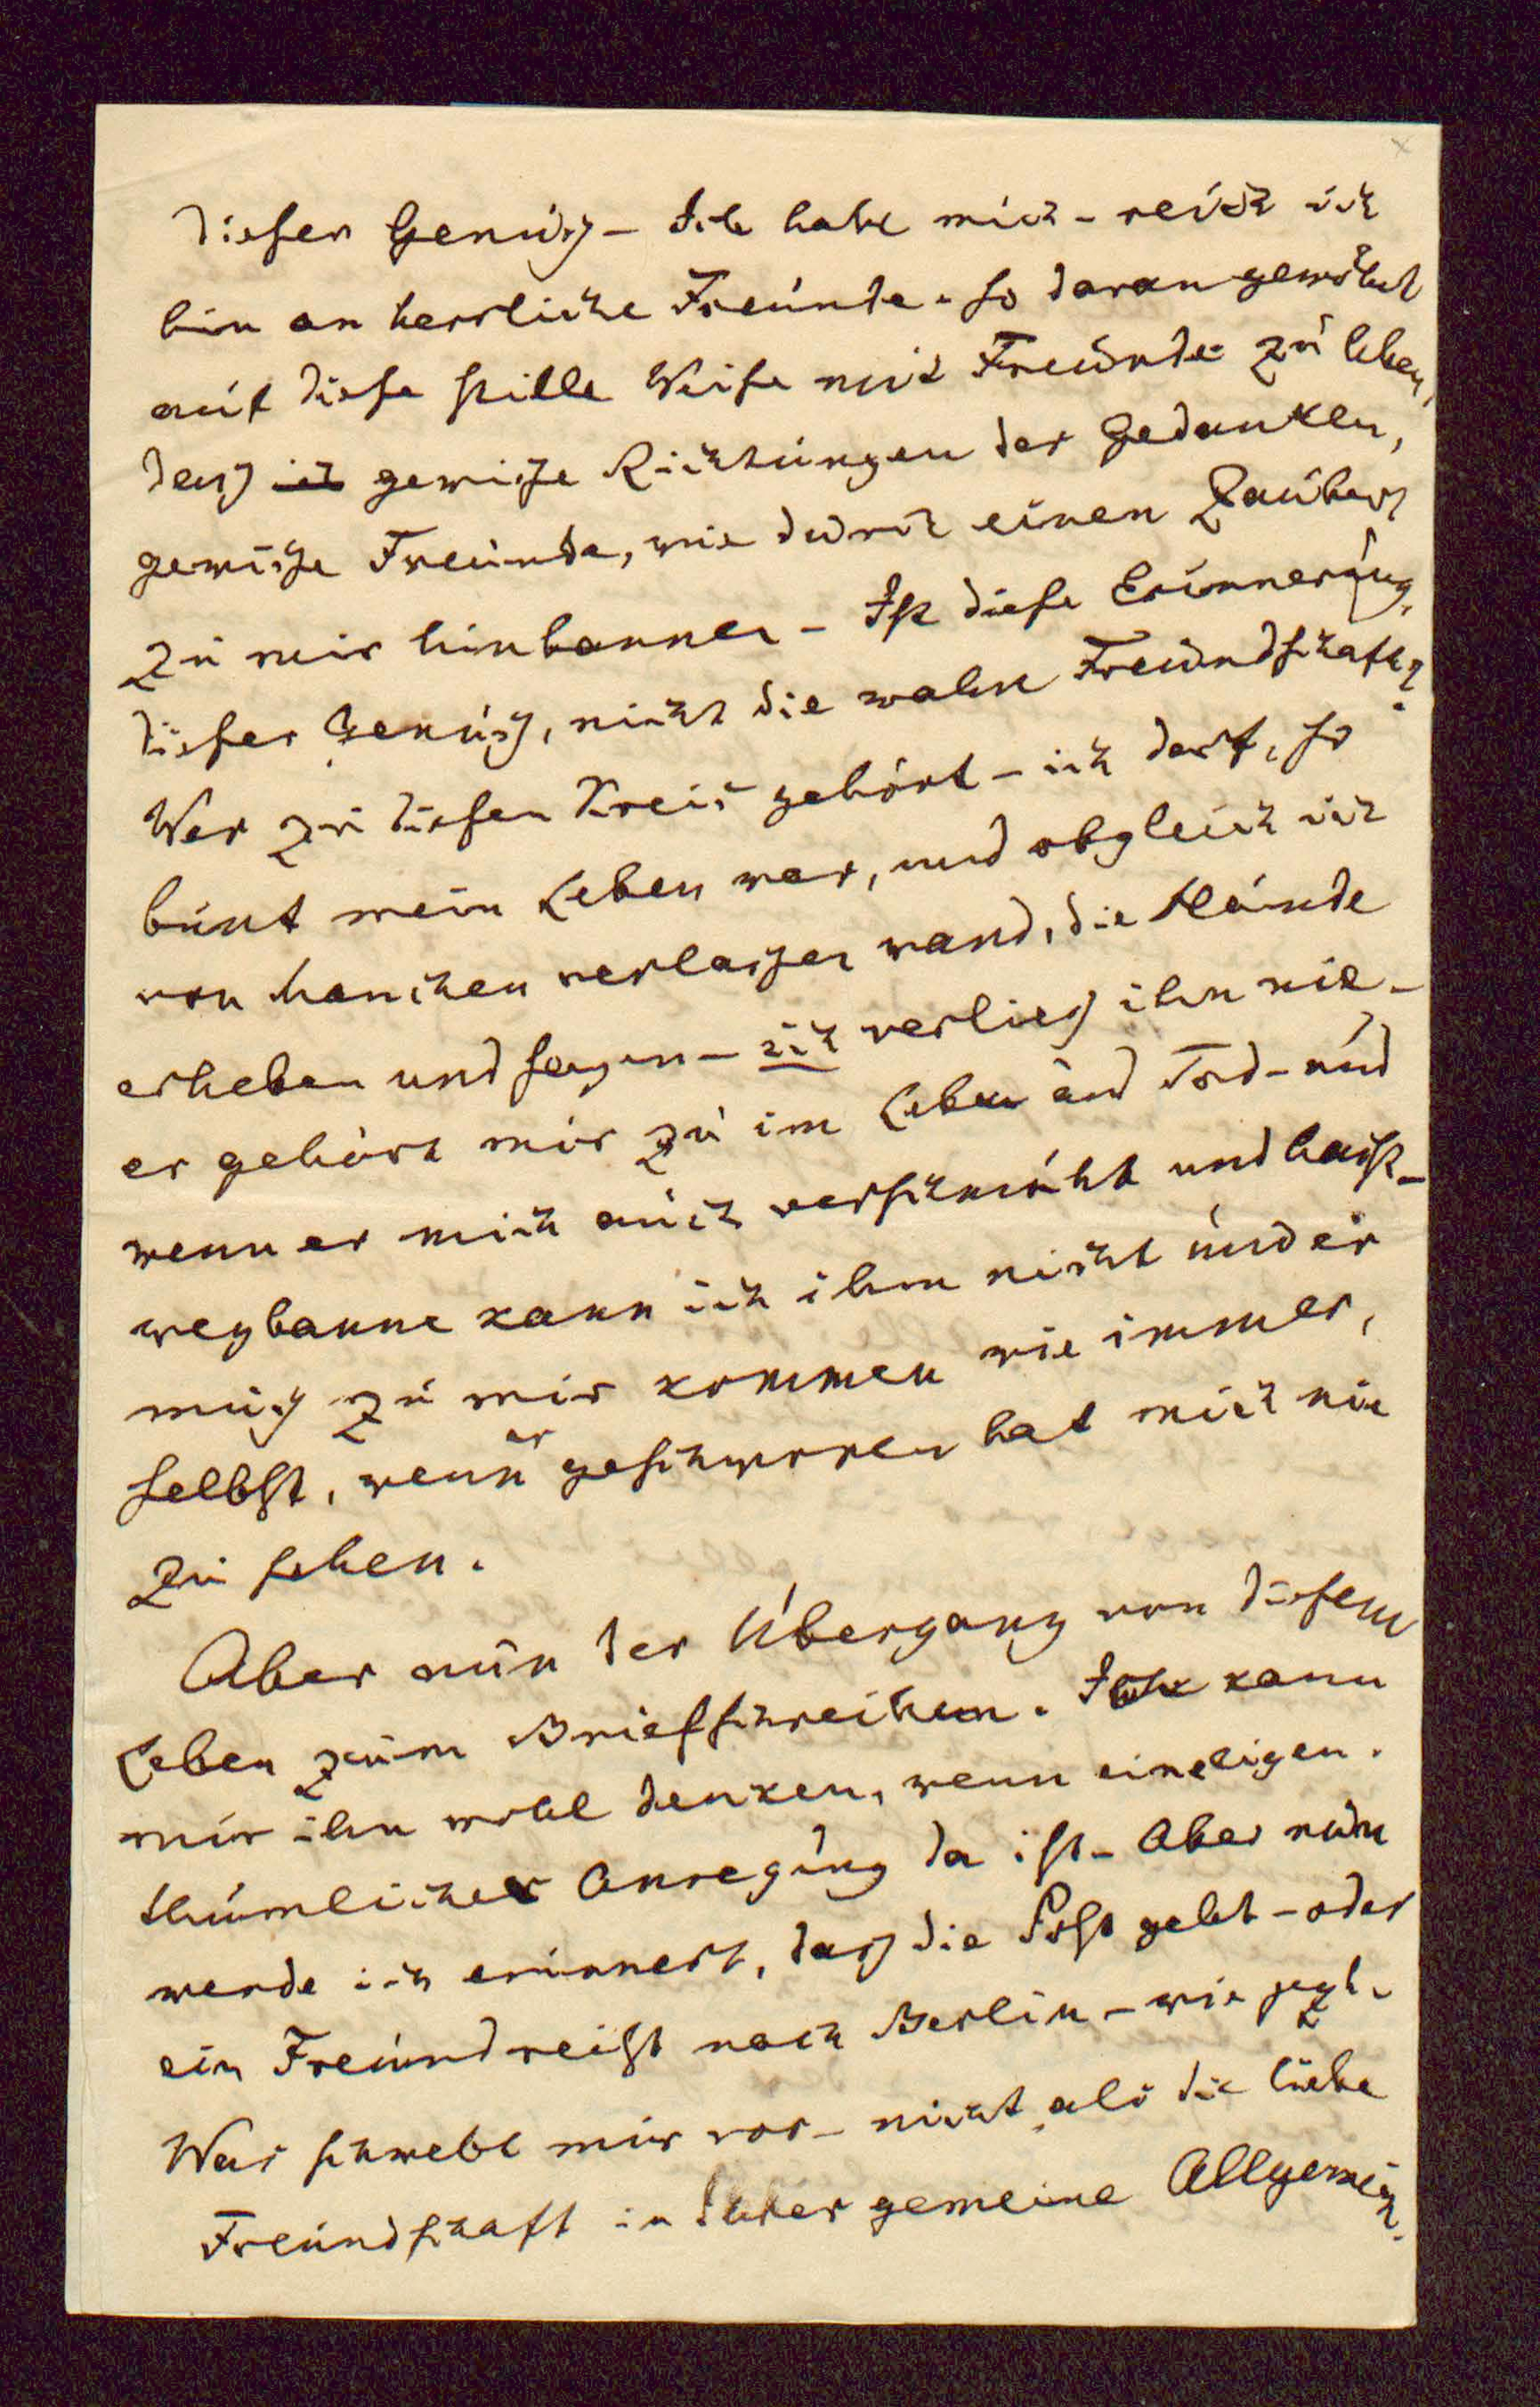 dieser Genuß – Ich habe mich – reich ich
bin an herrliche Freunde – so daran gewöhnt
auf diese stille Weise mit Freunde zu leben,
daß ich gewiße Richtungen der Gedanken,
gewiße Freunde, wie durch einen Zauber,
zu mir hinbannen – Ist diese Erinnerung,
dieser Genuß, nicht die wahre Freundschaft?
Wer zu diesen Kreis gehört – ich darf, so
bunt mein Leben war, und obgleich ich
von Manchen verlaßen ward, die Hände
erheben und sagen – ich verließ ihn nie –
er gehört mir zu im Leben und Tod – und
wenn er mich auch verschmäht und haßt –
wegbanne kann ich ihm nicht und er
muß zu mir kommen wie immer,
selbst, wenn er geschworen hat mich nie
zu sehen.
Aber nun der Übergang von diesem
Leben zum Briefschreiben. Ich kann
mir ihn wohl denken, wenn eine eigen.
thümlicher Anregung da ist – Aber nun
werde ich erinnert, daß die Post geht – oder
ein Freund reist nach Berlin – wie jezt.
Was schwebt mir vor – nicht als die liebe
Freundschaft in Ihrer gemeine Allgemein